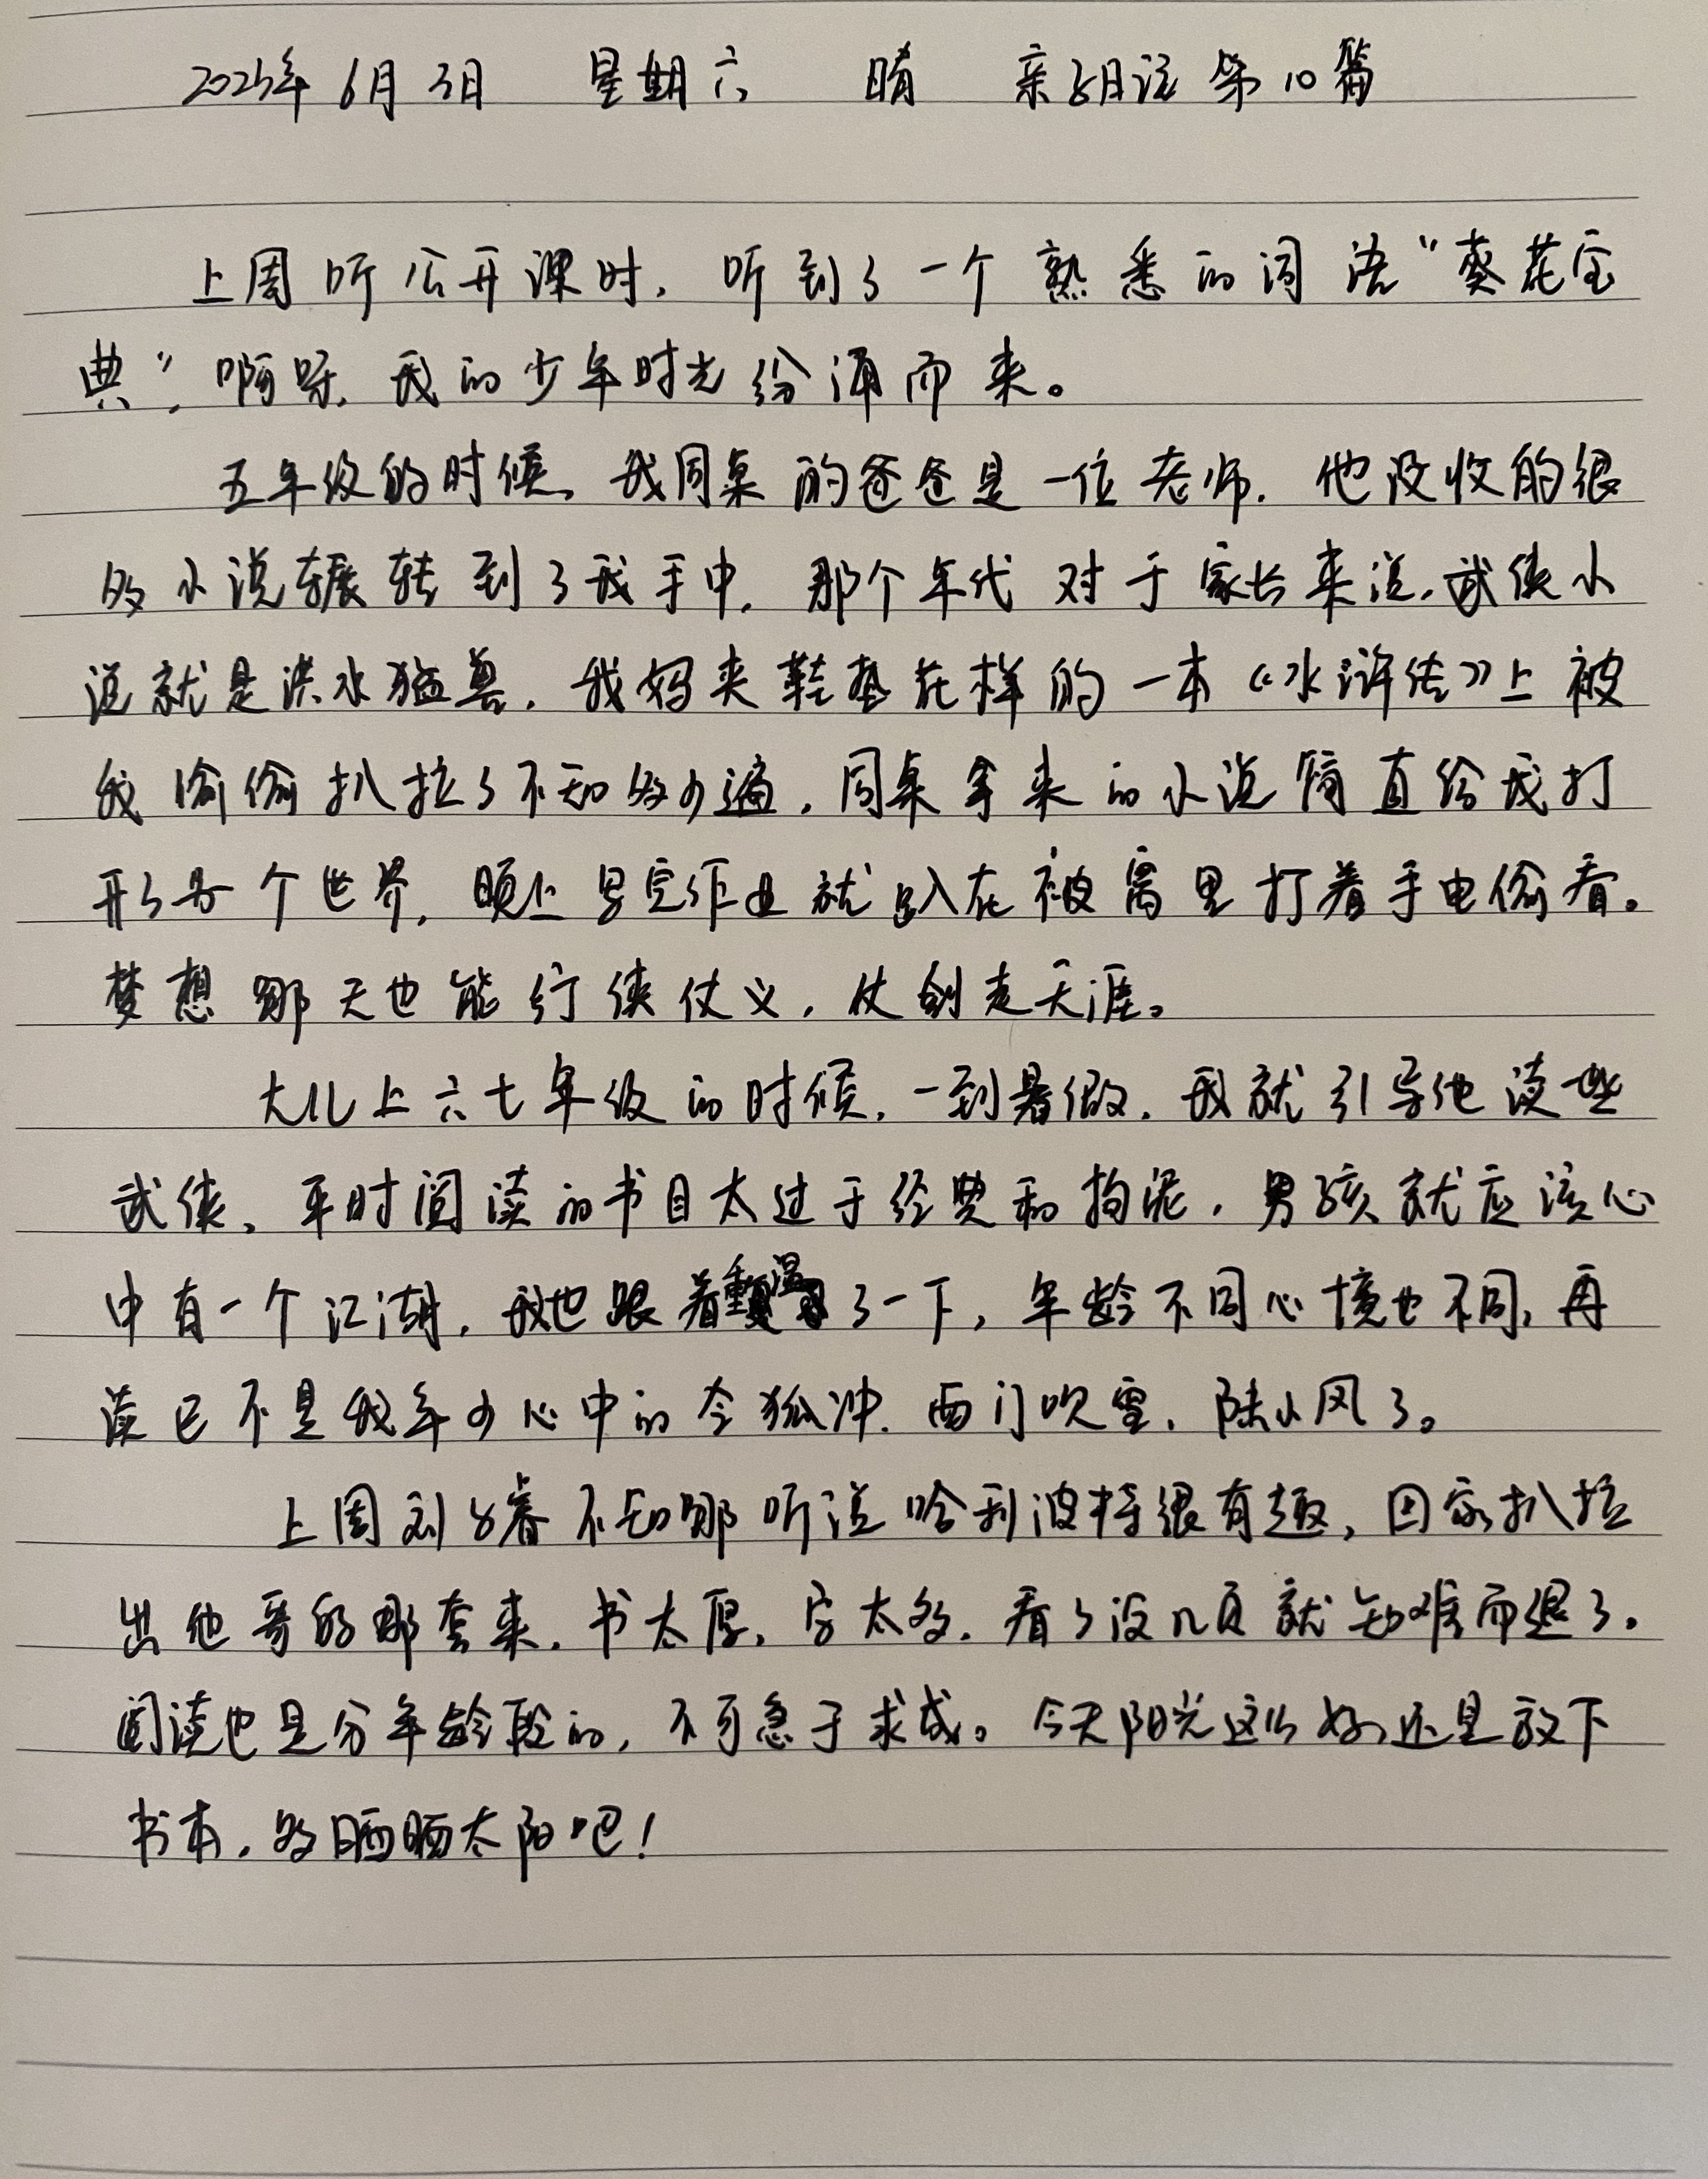 2023年 6月 3日 星期六 晴 亲子日记 第10篇
上周听公开课时，听到了一个熟悉的词语“葵花宝
典”，啊呀，我的少年时光纷涌而来。
五年级的时候，我同桌的爸爸是一位老师，他没收的很
多小说辗转到了我手中，那个年代对于家长来说，武侠小
说就是洪水猛兽，我妈夹鞋垫花样的一本《水浒传》上被
我偷偷扒拉了不知多少遍，同桌拿来的小说简直给我打
开了另个世界，晚上写完作业就趴在被窝里打着手电偷看。
梦想哪天也能行侠仗义，仗剑走天涯。
大儿上六七年级的时候，一到暑假，我就引导他读些
武侠，平时阅读的书目太过于经典和拘泥，男孩就应该心
中有一个江湖，我也跟着重温了一下，年龄不同心境也不同，再
读已不是我年少心中的令狐冲、西门吹雪、陆小凤了。
上周刘子睿不知哪听说哈利波特很有趣，回家扒拉
出他哥的那套来，书太厚，字太多，看了没几页就知难而退了。
阅读也是分年龄段的，不可急于求成。今天阳光这么好，还是放下
书本，多晒晒太阳吧！